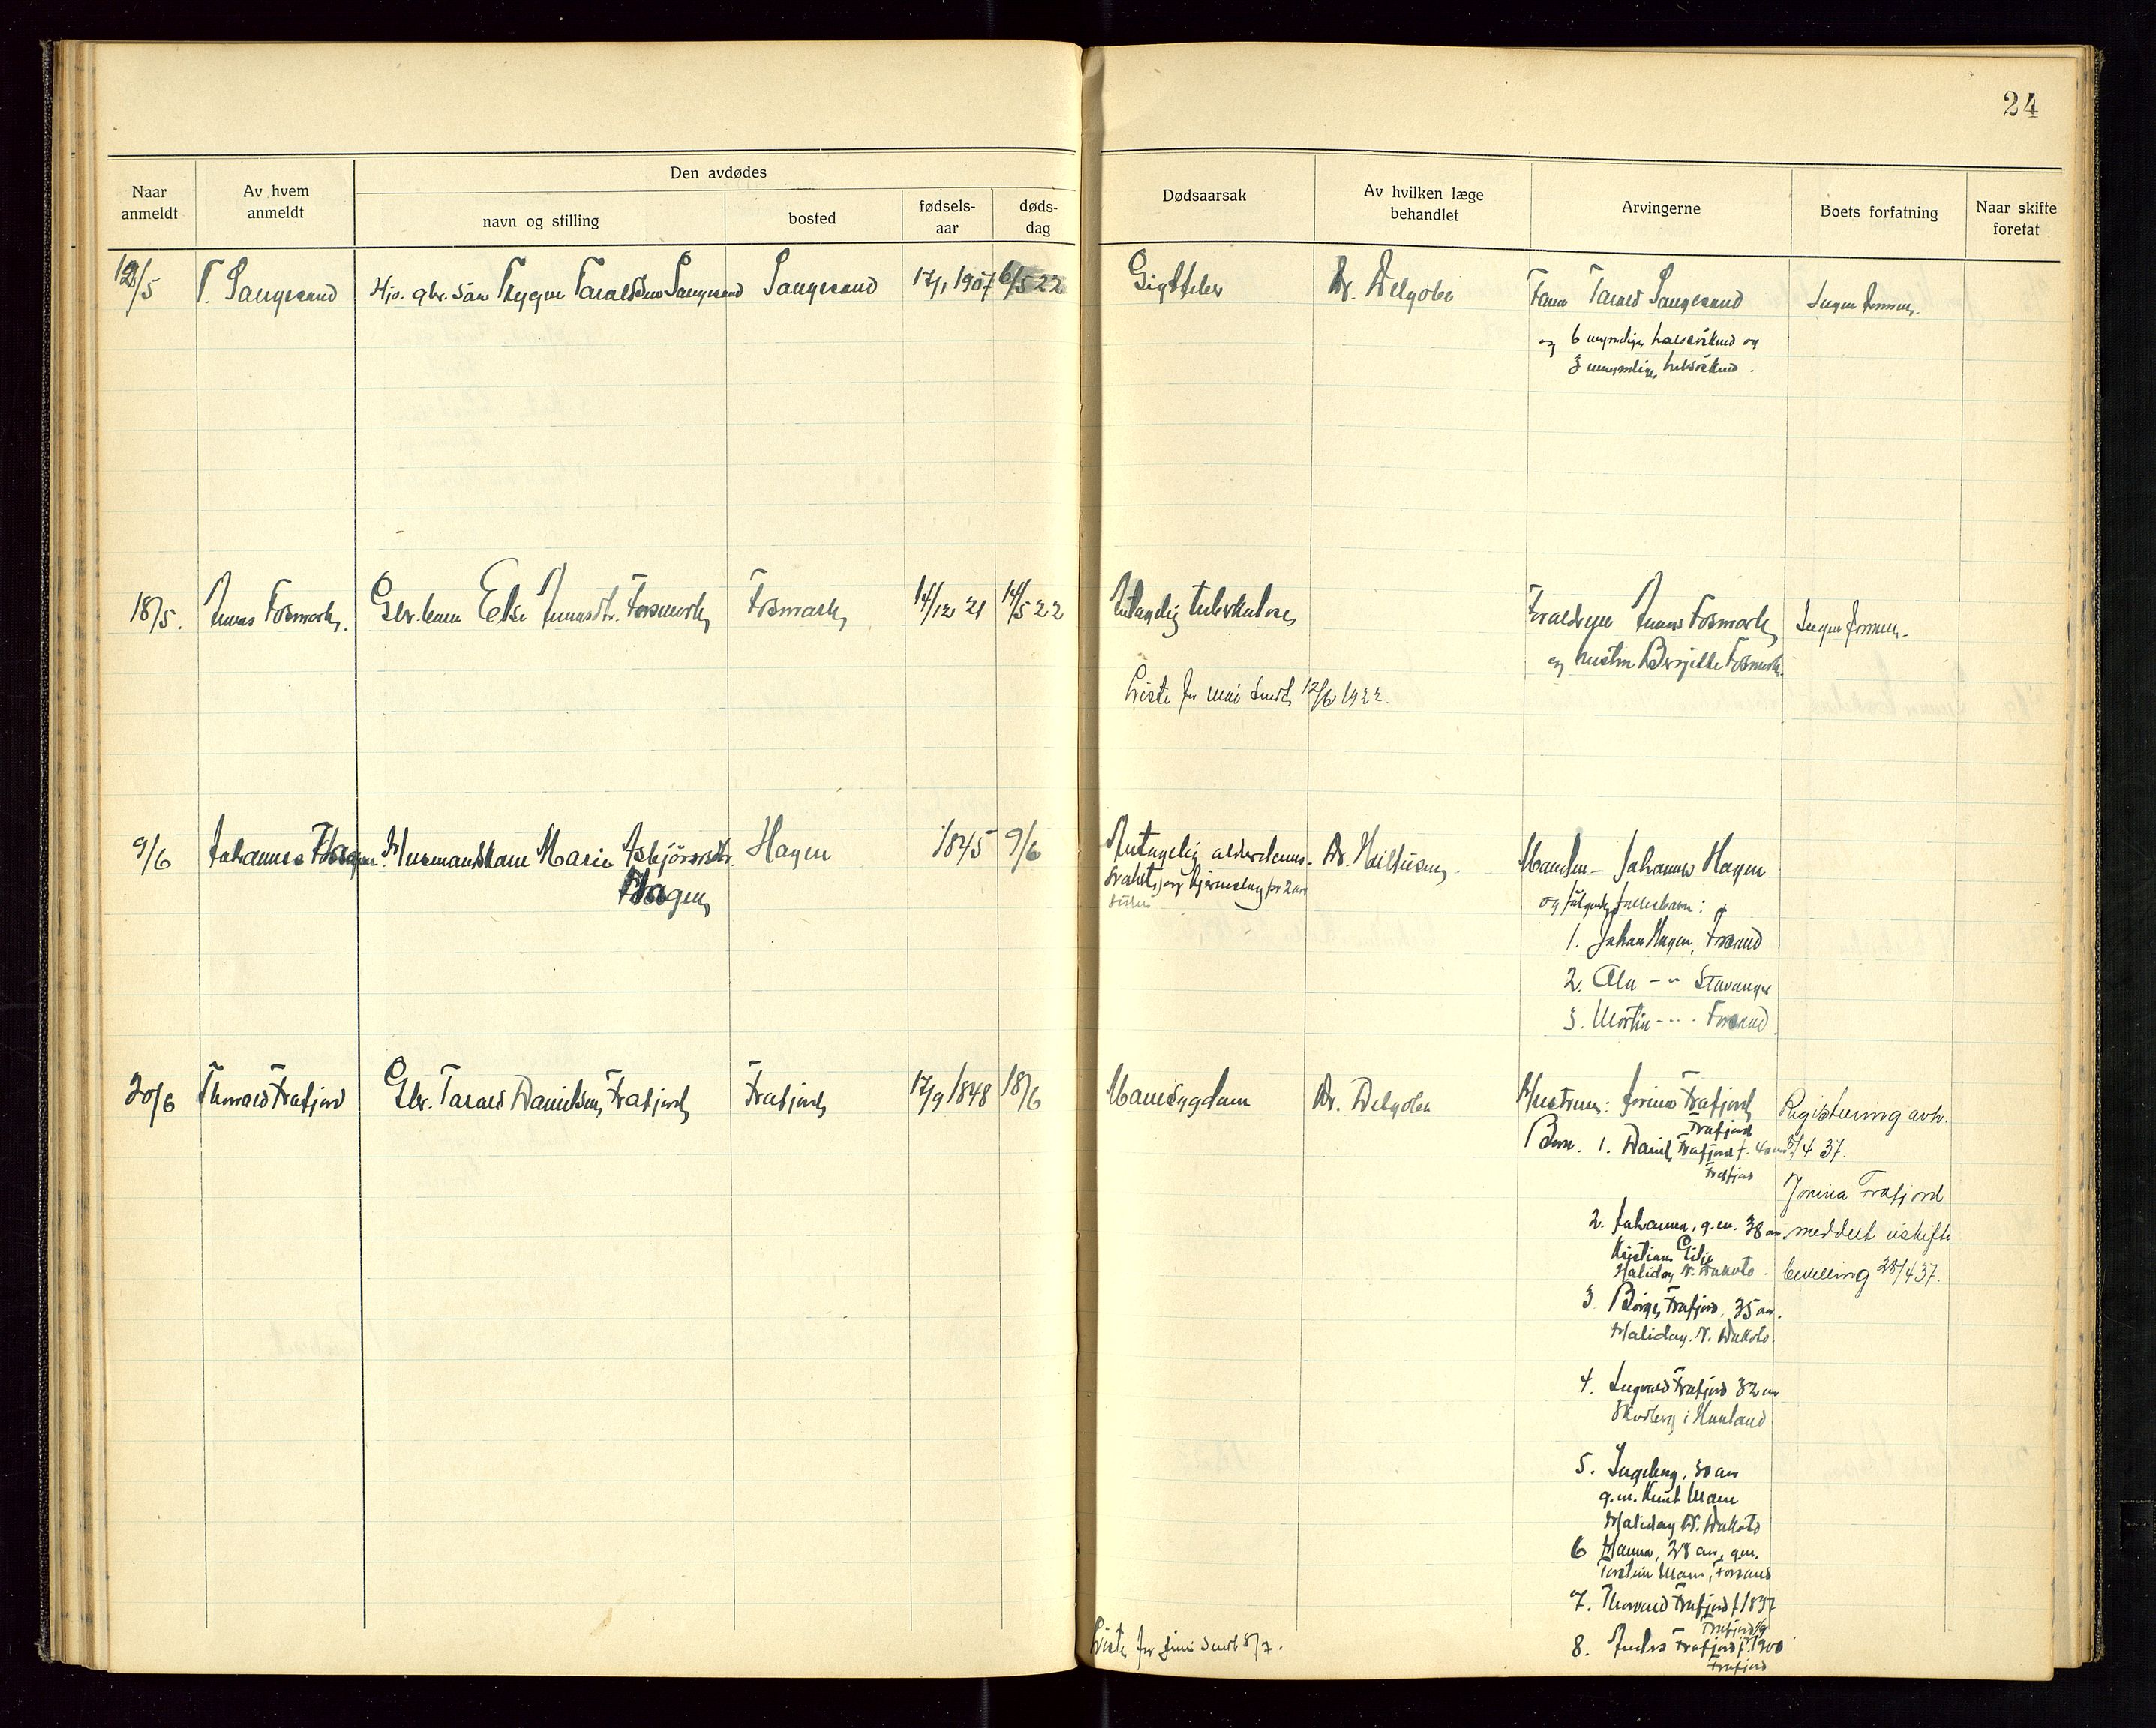 24
Naar anmeldt
Av hvem anmeldt
Den avdødes
navn og stilling
bosted
fødsels-aar
døds-dag
Dødsaarsak
Av hvilken læge behandlet
Arvingerne
Boets forfatning
Naar skifte foretat
12/5 T. Sangesand Hjv. gbr. søn Trygve Taraldsen Sangesand Sangesand 17/1 1907 6/5 22 Gigtfeber Dr. Ingen formue.
Tarald Sangesand
og 6 umyndige helsøskend og
3 umyndige halvsøskend.
18/5. Jonas Fosmark. Gbr. barn Else Jonasdtr. Fosmark Fosmark 14/12 21 14/5 22 Antagelig tuberkulose Forældrene Jonas Fosmark Ingen formue.
og hustru Fosmark.
Liste for mai sendt 12/6 1922.
9/6 Johannes Hagen Husmandskone Marie Asbjørnsdtr. Hagen 1845 9/6 Antagelig alderdoms- Dr. Manden - Johannes Hagen
Hagen svakhet, og hjerneslag for 2 aar
siden og følgende fællesbarn:
1. Johan Hagen, Forsand
2. Ole - " - Stavanger
3. Martin - " - Forsand
20/6 Thorvald Frafjord Gbr. Tarald Danielsen Frafjord Frafjord 17/9 1848 18/6 Mavesygdom Dr. Hustru: Jorina Frafjord Registrering avh.
Frafjord 8/4 37.
Børn. 1. Daniel Frafjord f. 40 aar
Frafjord
Jorina Frafjord
2. Johanna, g.m. 38 aar meddelt uskifte
Kristian Gilje
Haliday N. Dakota. bevilling 28/4 37.
3. Børge Frafjord, 35 aar.
Haliday. N. Dakota.
4. Ingvald Frafjord 32 aar
i
5. Ingeborg, 30 aar
g.m. Knut
Haliday N. Dakota
6 Hanna, 28 aar, g.m.
Torstein Forsand
7. Thorvald Frafjord f. 1897
Frafjord
8. Frafjord f. 1900
Frafjord
Liste for juni sendt 8/7.